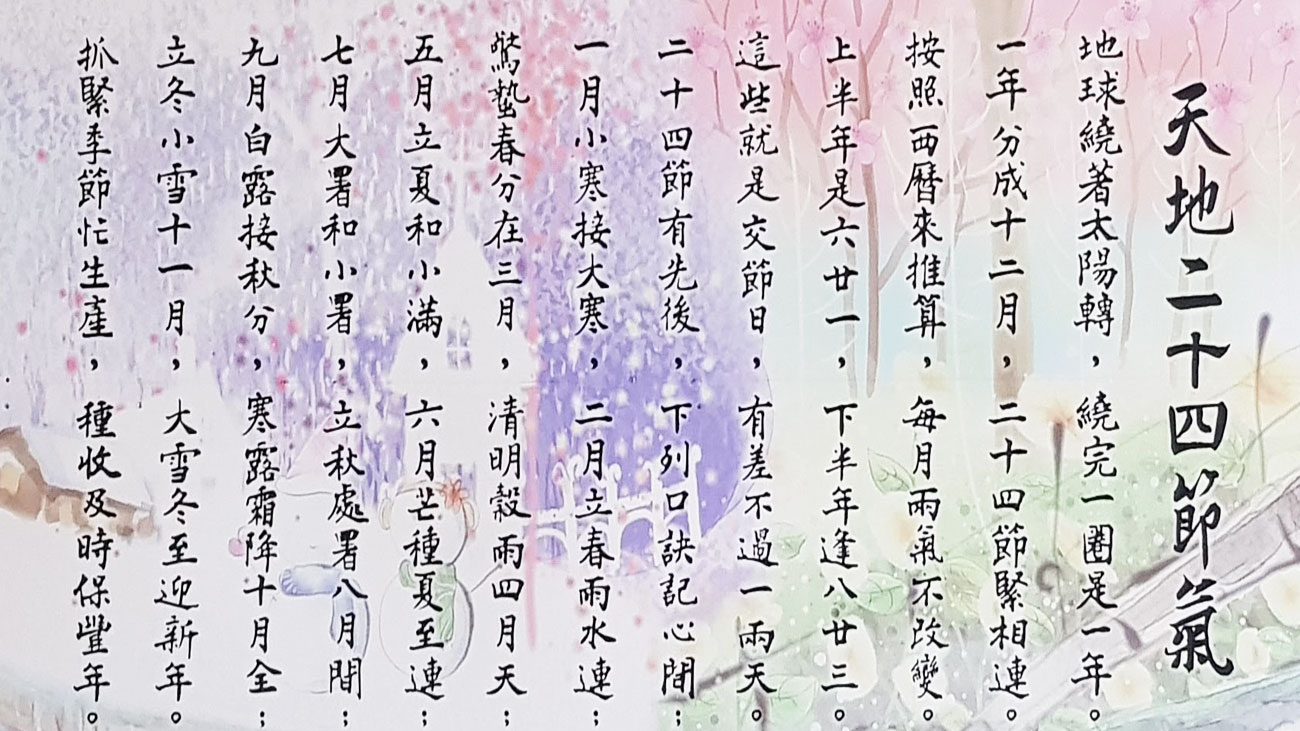 天地二十四節氣
地球繞著太陽轉，繞完一圈是一年。
一年分成十二月，二十四節緊相連。
按照西曆來推算，每月兩氣不改變。
上半年是六廿一，下半年逢八廿三。
這些就是交節日，有差不過一兩天。
二十四節有先後，下列口訣記心間；
一月小寒接大寒，二月立春雨水連；
驚蟄春分在三月，清明穀雨四月天；
五月立夏和小滿，六月芒種夏至連；
七月大署和小署，立秋處署八月間；
九月白露接秋分，寒露霜降十月全；
立冬小雪十一月，大雪冬至迎新年。
抓緊季節忙生產，種收及時保豐年。